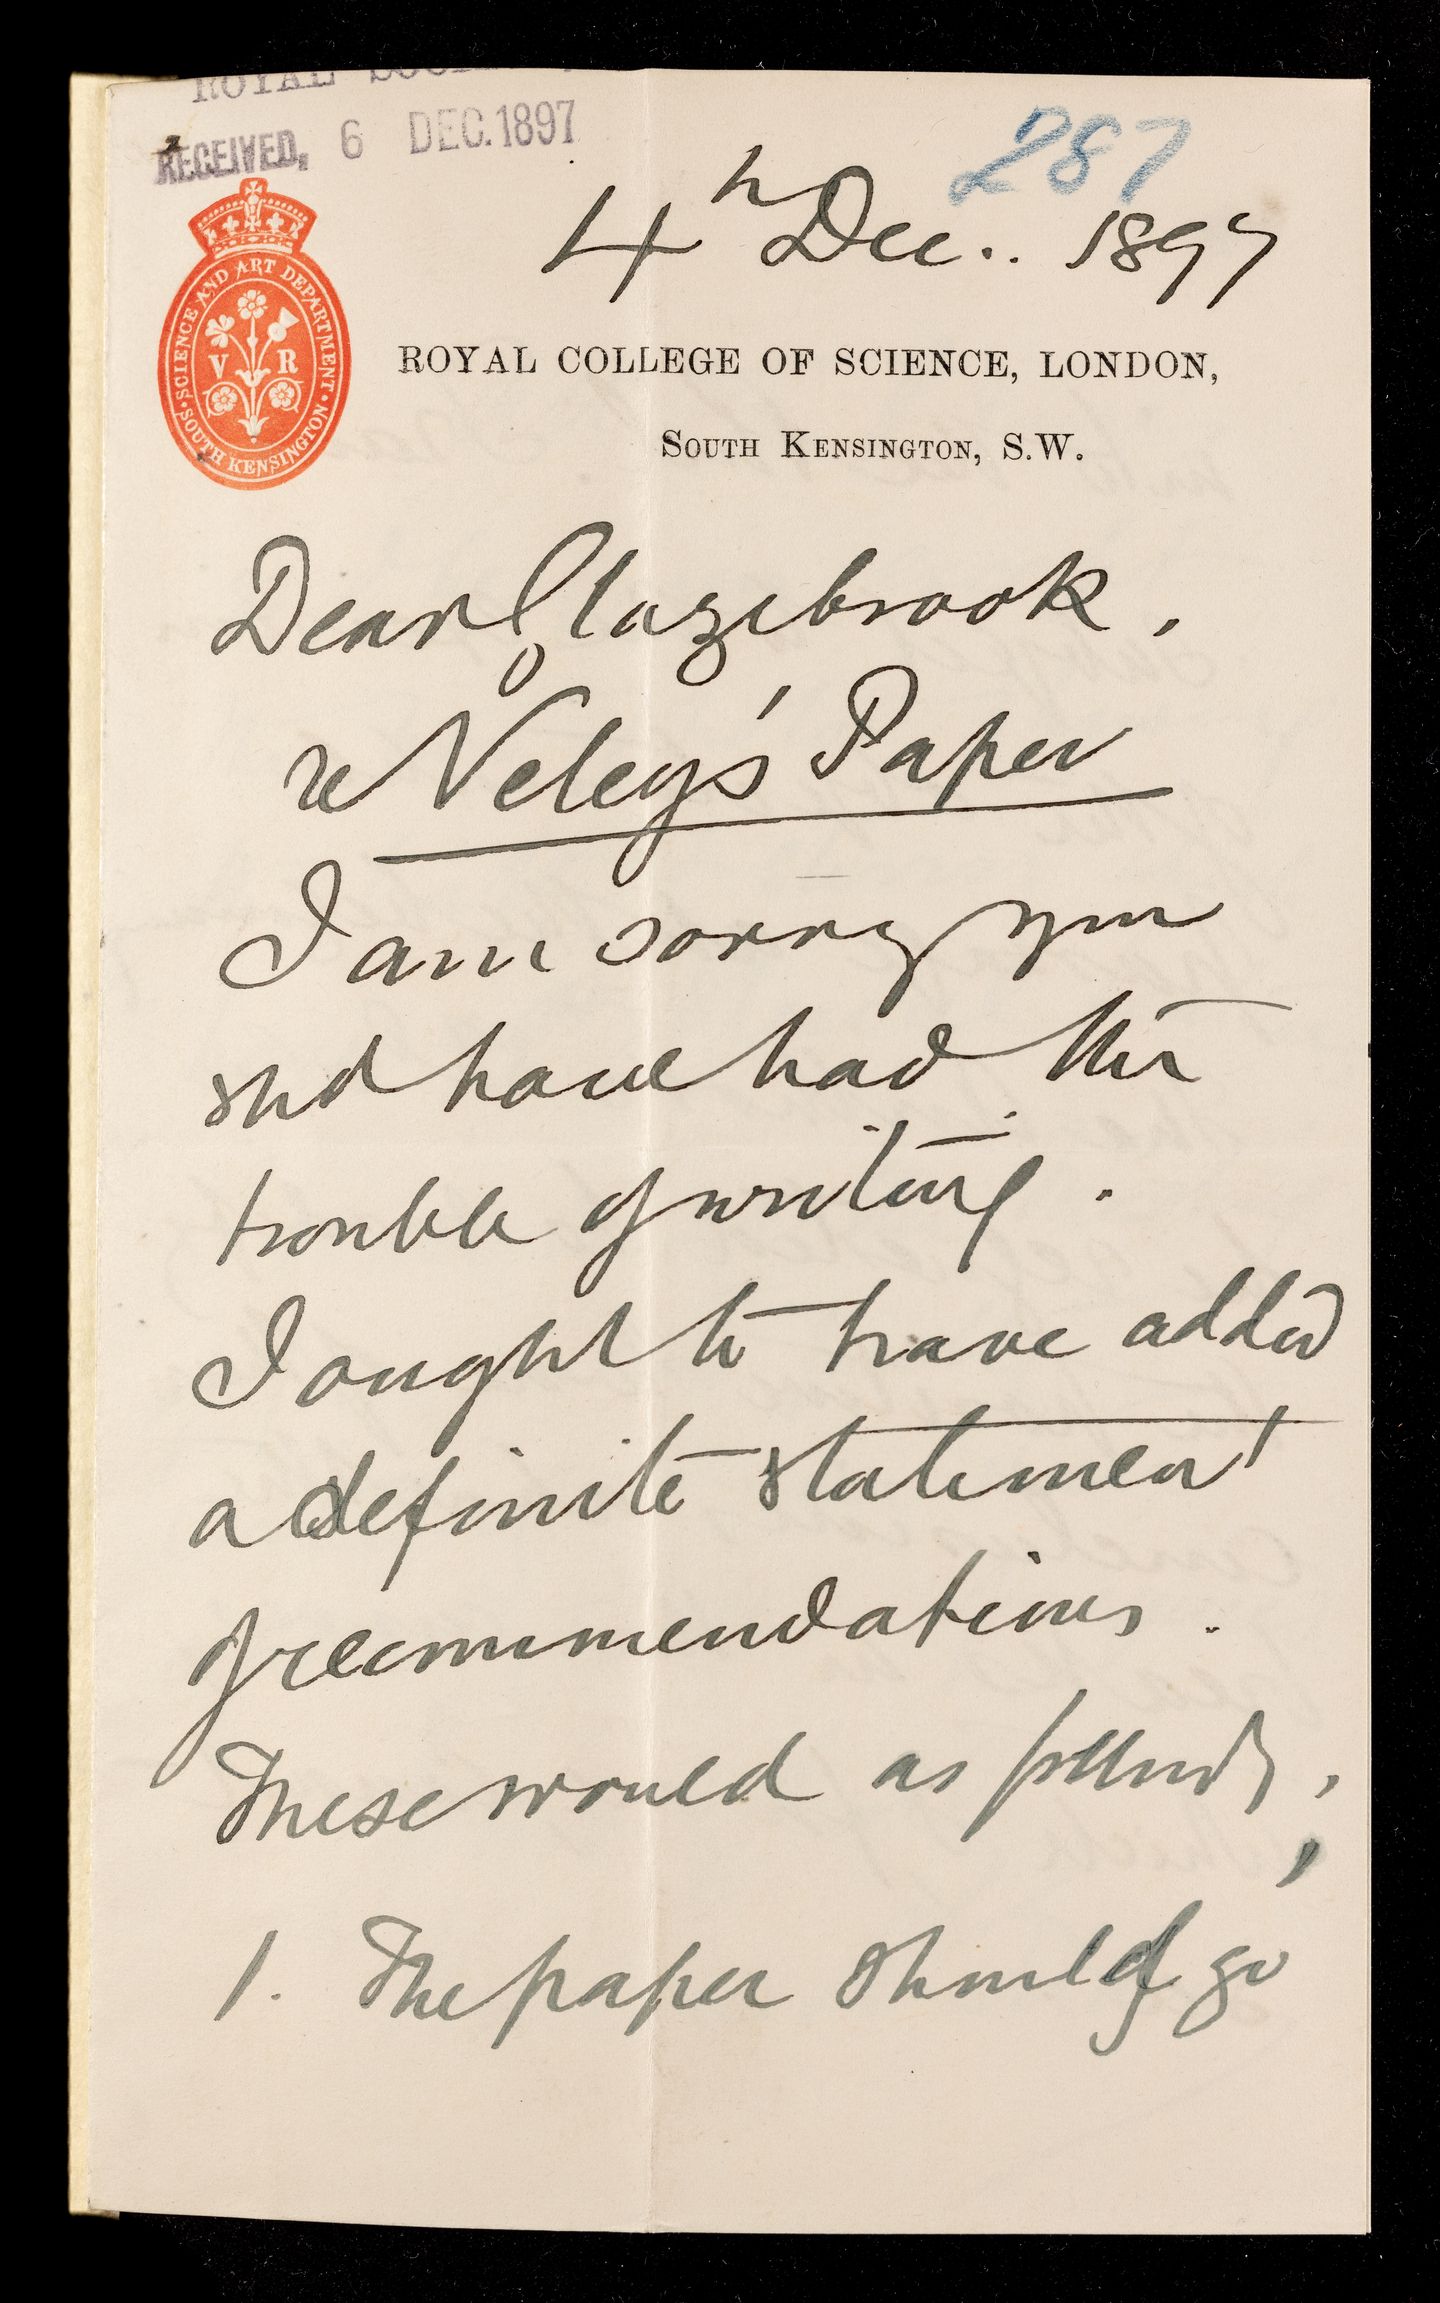 ROYAL SOCI
RECEIVED, 6 DEC. 1897
287
4th Dec. 1897
SCIENCE AND ART DEPARTMENT · SOUTH KENSINGTON ·
V R
ROYAL COLLEGE OF SCIENCE, LONDON,
SOUTH KENSINGTON, S.W.
Dear Glazebrook,
re Veley's Paper
I am sorry you
shd have had the
trouble of writing.
I ought to have added
a definite statement
of recommendations.
These would as follows,
1. The paper should go